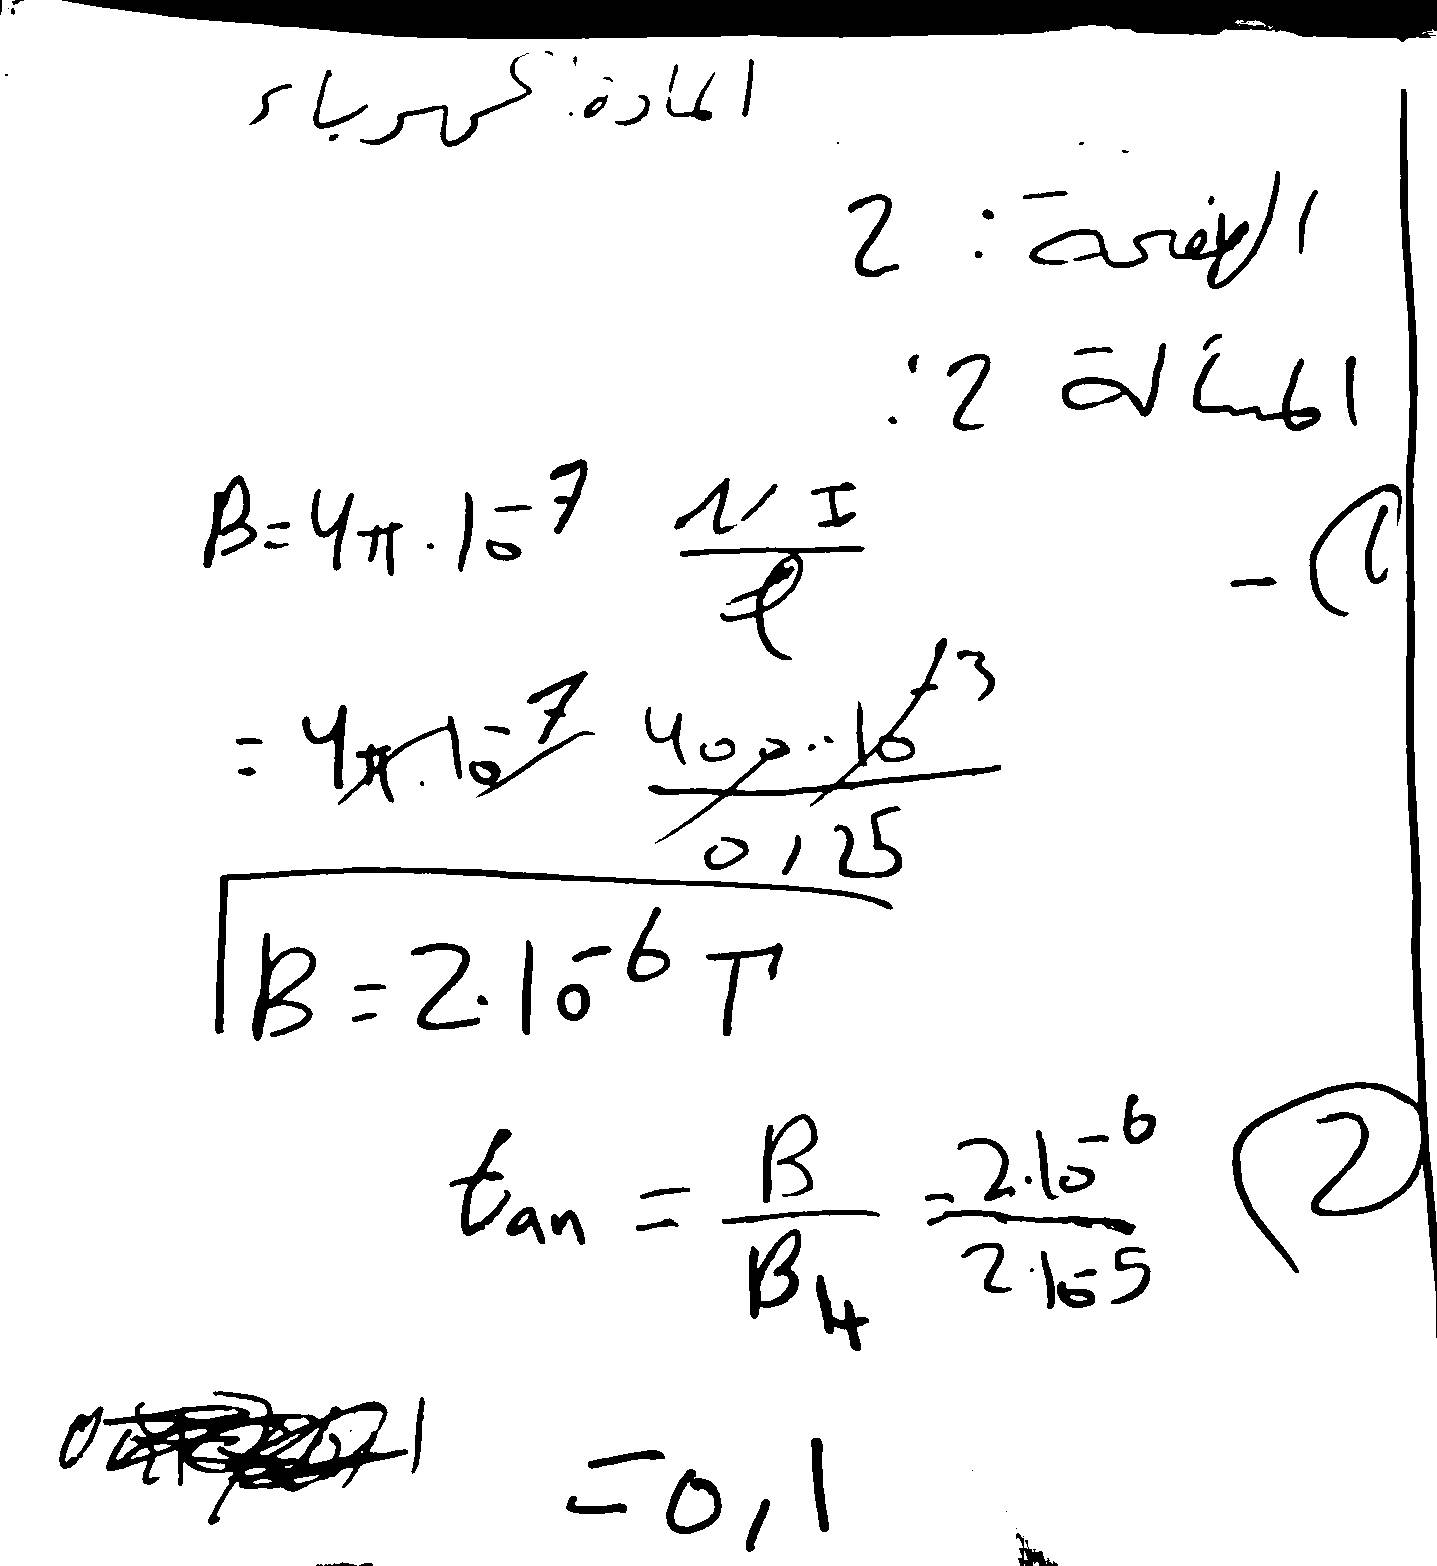 المادة: كهرباء
الوضعية: 2
المسألة 2:
1) - B = 4π.10⁻⁷ NI/ℓ
= 4π.10⁻⁷ 400.10⁻³/0,25
B = 2.10⁻⁶ T
2) tan = B/B_H = 2.10⁻⁶/2.10⁻⁵
= 0,1